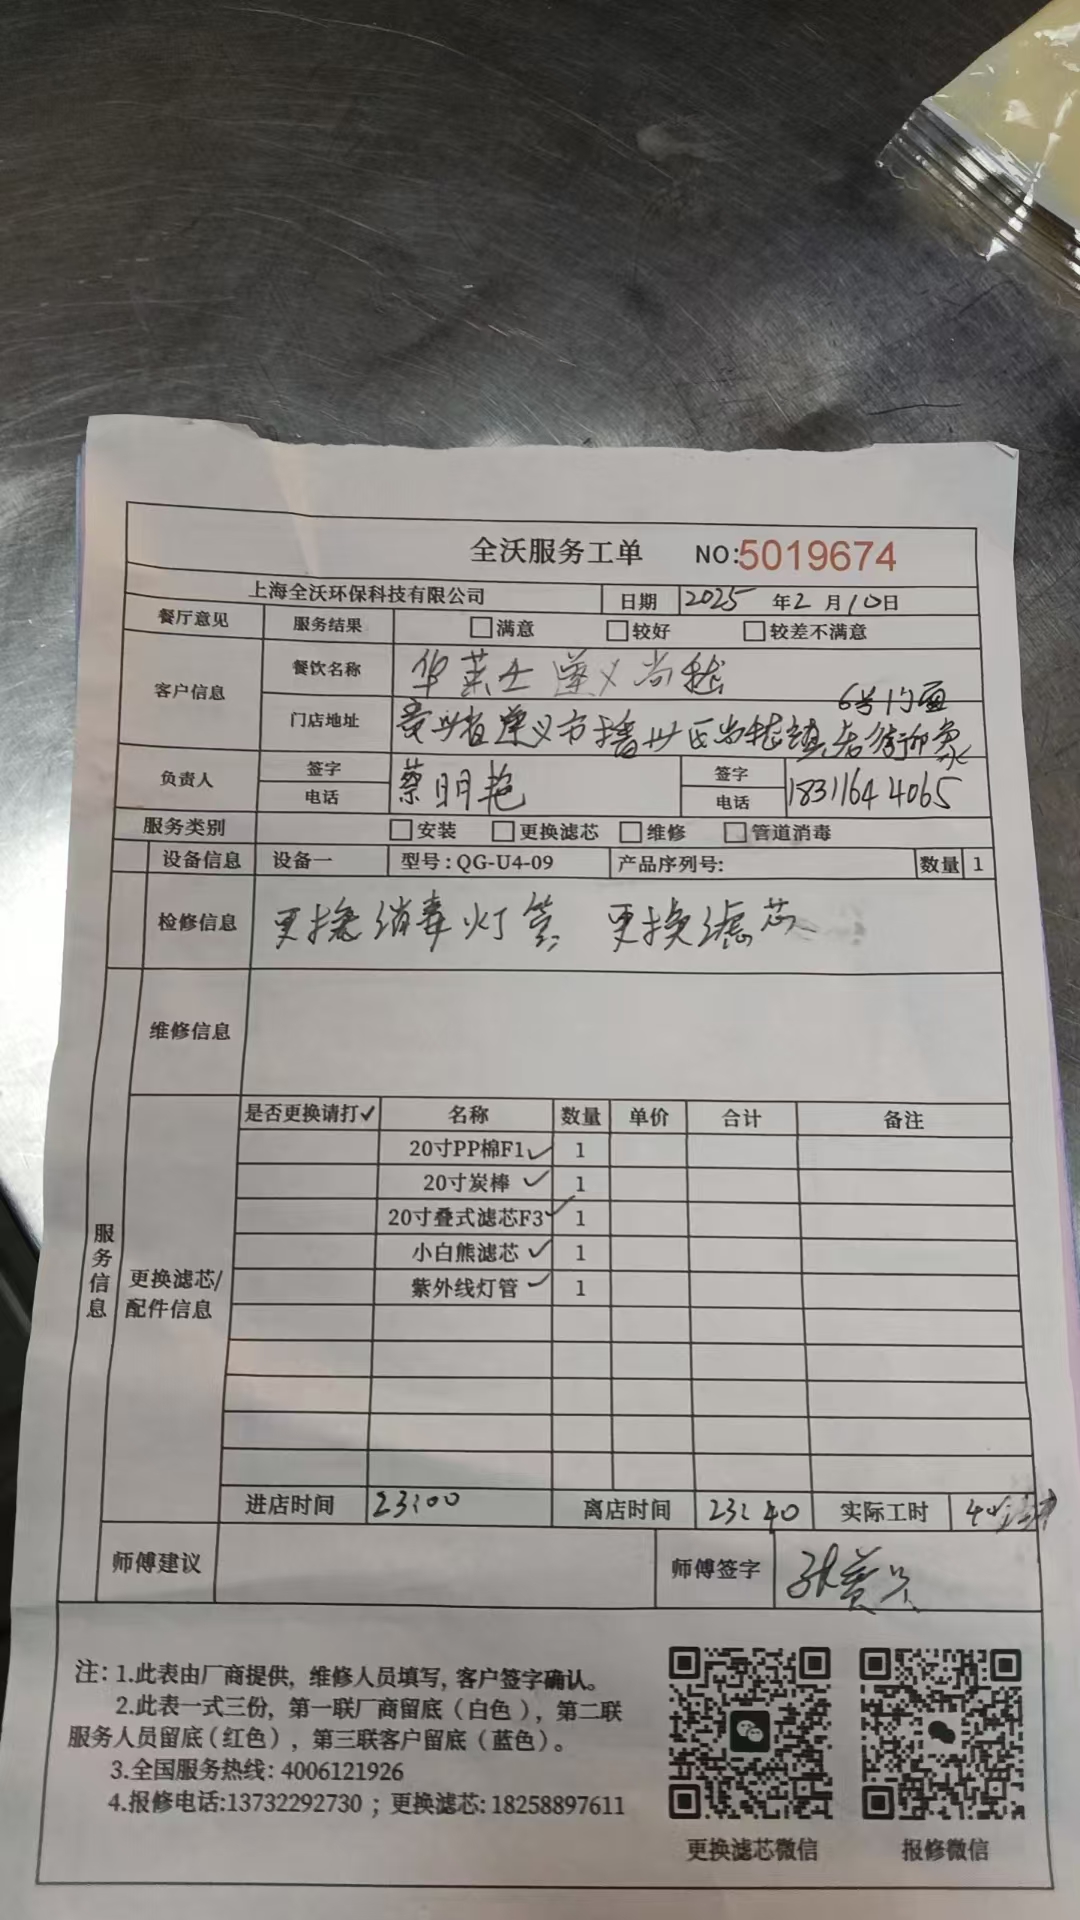 全沃服务工单 NO:5019674
上海全沃环保科技有限公司 日期 2025 年2 月10日
餐厅意见 服务结果 □满意 □较好 □较差不满意
客户信息 餐饮名称 华莱士遵义尚嵇
6号门面
门店地址 贵州省遵义市播州区尚嵇镇老街
负责人 签字 蔡明艳 签字
电话 电话 18311644065
服务类别 □安装 □更换滤芯 □维修 □管道消毒
设备信息 设备一 型号:QG-U4-09 产品序列号: 数量 1
检修信息 更换消毒灯管 更换滤芯
维修信息
服务信息
更换滤芯/配件信息
是否更换请打✓ 名称 数量 单价 合计 备注
20寸PP棉F1 ✓ 1
20寸炭棒 ✓ 1
20寸叠式滤芯F3 ✓ 1
小白熊滤芯 ✓ 1
紫外线灯管 ✓ 1
进店时间 23:00 离店时间 23:40 实际工时 40分钟
师傅建议 师傅签字
注: 1.此表由厂商提供, 维修人员填写, 客户签字确认。
2.此表一式三份, 第一联厂商留底(白色), 第二联
服务人员留底(红色), 第三联客户留底(蓝色)。
3.全国服务热线: 4006121926
4.报修电话:13732292730 ; 更换滤芯: 18258897611
更换滤芯微信 报修微信